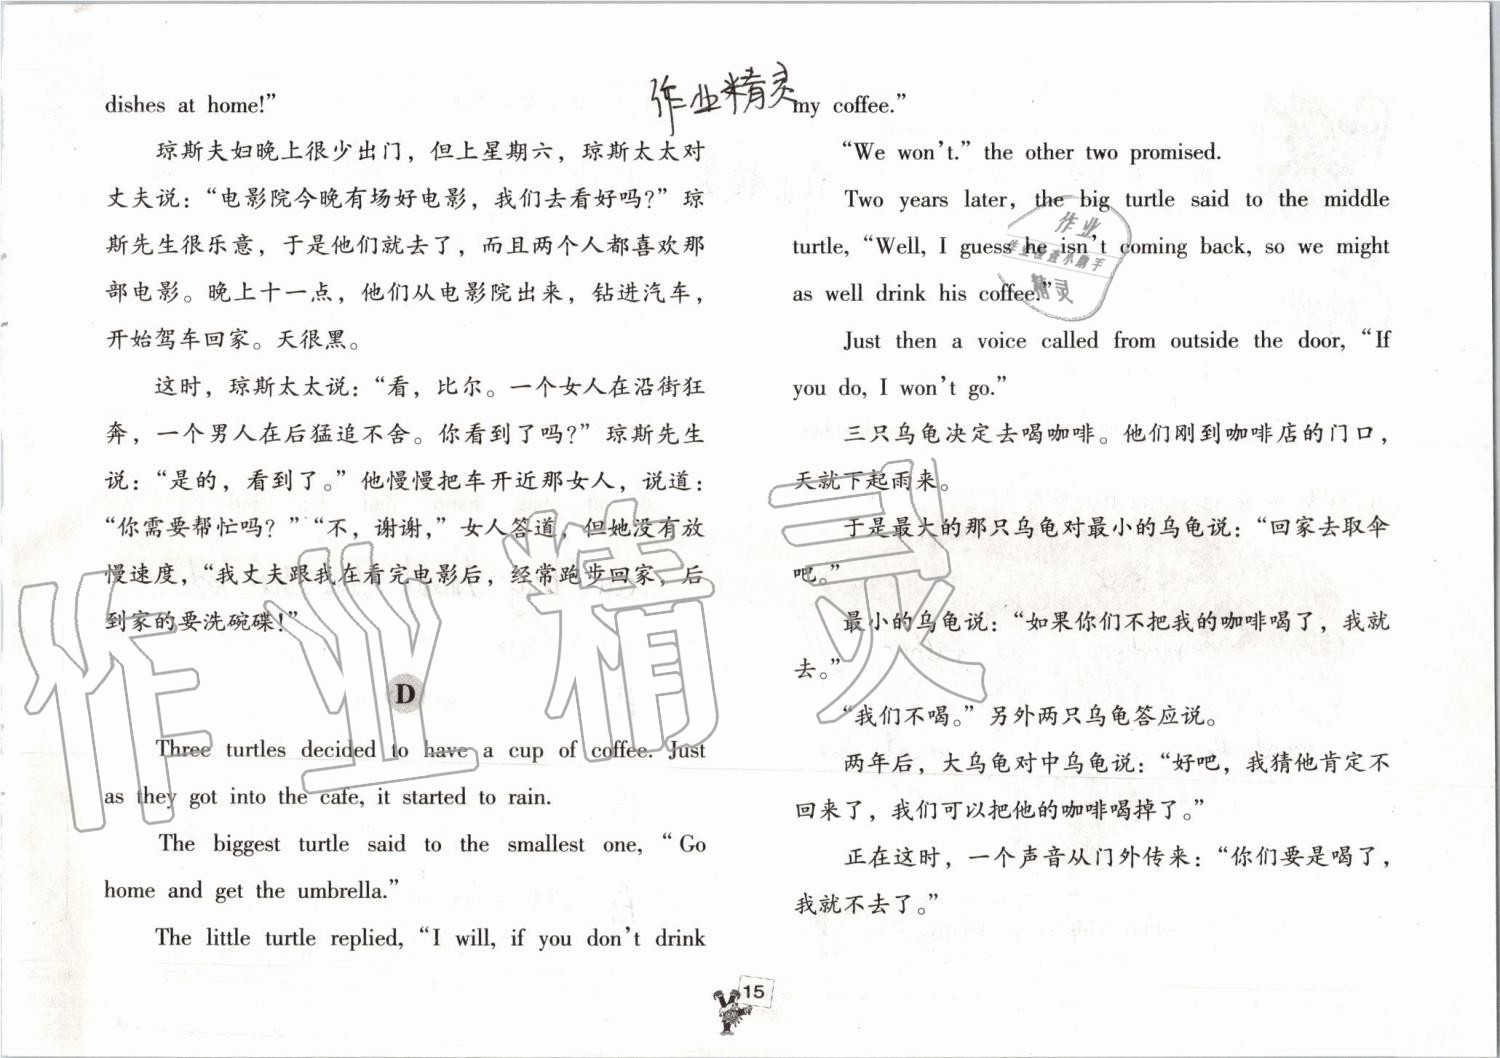 作业精灵
dishes at home!”
琼斯夫妇晚上很少出门，但上星期六，琼斯太太对
丈夫说：“电影院今晚有场好电影，我们去看好吗?”琼
斯先生很乐意，于是他们就去了，而且两个人都喜欢那
部电影。晚上十一点，他们从电影院出来，钻进汽车，
开始驾车回家。天很黑。
这时，琼斯太太说：“看，比尔。一个女人在沿街狂
奔，一个男人在后猛追不舍。你看到了吗?”琼斯先生
说：“是的，看到了。”他慢慢把车开近那女人，说道：
“你需要帮忙吗？”“不，谢谢，”女人答道，但她没有放
慢速度，“我丈夫跟我在看完电影后，经常跑步回家，后
到家的要洗碗碟!”
D
Three turtles decided to have a cup of coffee. Just
as they got into the cafe, it started to rain.
The biggest turtle said to the smallest one, “Go
home and get the umbrella.”
The little turtle replied, “I will, if you don’t drink
my coffee.”
“We won’t.” the other two promised.
Two years later, the big turtle said to the middle
turtle, “Well, I guess he isn’t coming back, so we might
as well drink his coffee.”
Just then a voice called from outside the door, “If
you do, I won’t go.”
三只乌龟决定去喝咖啡。他们刚到咖啡店的门口，
天就下起雨来。
于是最大的那只乌龟对最小的乌龟说：“回家去取伞
吧。”
最小的乌龟说：“如果你们不把我的咖啡喝了，我就
去。”
“我们不喝。”另外两只乌龟答应说。
两年后，大乌龟对中乌龟说：“好吧，我猜他肯定不
回来了，我们可以把他的咖啡喝掉了。”
正在这时，一个声音从门外传来：“你们要是喝了，
我就不去了。”
作业
作业检查小帮手
精灵
作业精灵
15